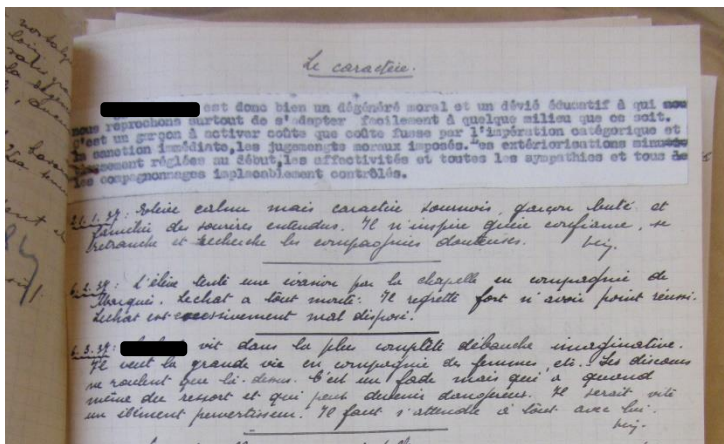 Le caractère.
est donc bien un dégénéré moral et un dévié éducatif à qui nous
nous reprochons surtout de s'adapter facilement à quelque milieu que ce soit.
C'est un garçon à activer coûte que coûte fusse par l'impération catégorique et
la sanction immédiate, les jugements moraux imposés. es extériorisations minutieu
sement réglées au début, les affectivités et toutes les sympathies et tous
les compagnonnages implacablement contrôlés.
21.1.37: Elève calme mais caractère sournois, garçon buté et
des sourires entendus. Il n'inspire guère confiance, se
retranche et recherche les compagnies douteuses.
6.2.37: L'élève tente une évasion par la chapelle en compagnie de
Lechat a tout monté. Il regrette fort n'avoir point réussi.
Lechat est excessivement mal disposé.
6.3.37: vit dans la plus complète débauche imaginative.
Il veut la grande vie en compagnie des femmes, etc. Ses discours
ne roulent que là-dessus. C'est un fade mais qui a quand
même du ressort et qui peut devenir dangereux. Il serait vite
un élément pervertisseur. Il faut s'attendre à tout avec lui.